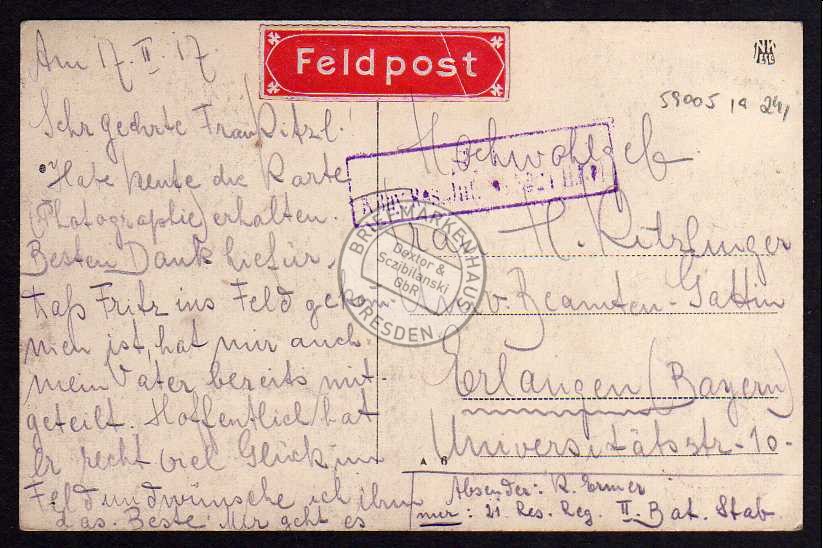 Feldpost
Am 17. II. 17.
Sehr geehrte Frau Ritzl.!
Habe heute die Karte
(Photographie) erhalten.
Besten Dank hiefür,
daß Fritz ins Feld gekom-
men ist, hat mir auch
mein Vater bereits mit-
geteilt. Hoffentlich hat
er recht viel Glück im
Feld und wünsche ich ihm
das Beste. Mir geht es
59005 19 24,1
Hochwohlgeb
Frau H. Ritzlinger
Univ. Beamten-Gattin
Erlangen (Bayern)
Universitätsstr-10-
A B
Absender: R. Ermer
21. Res. Reg. II. Bat. Stab
BRIEFMARKENHAUS
Dextor &
Sczibilanski
GbR
DRESDEN